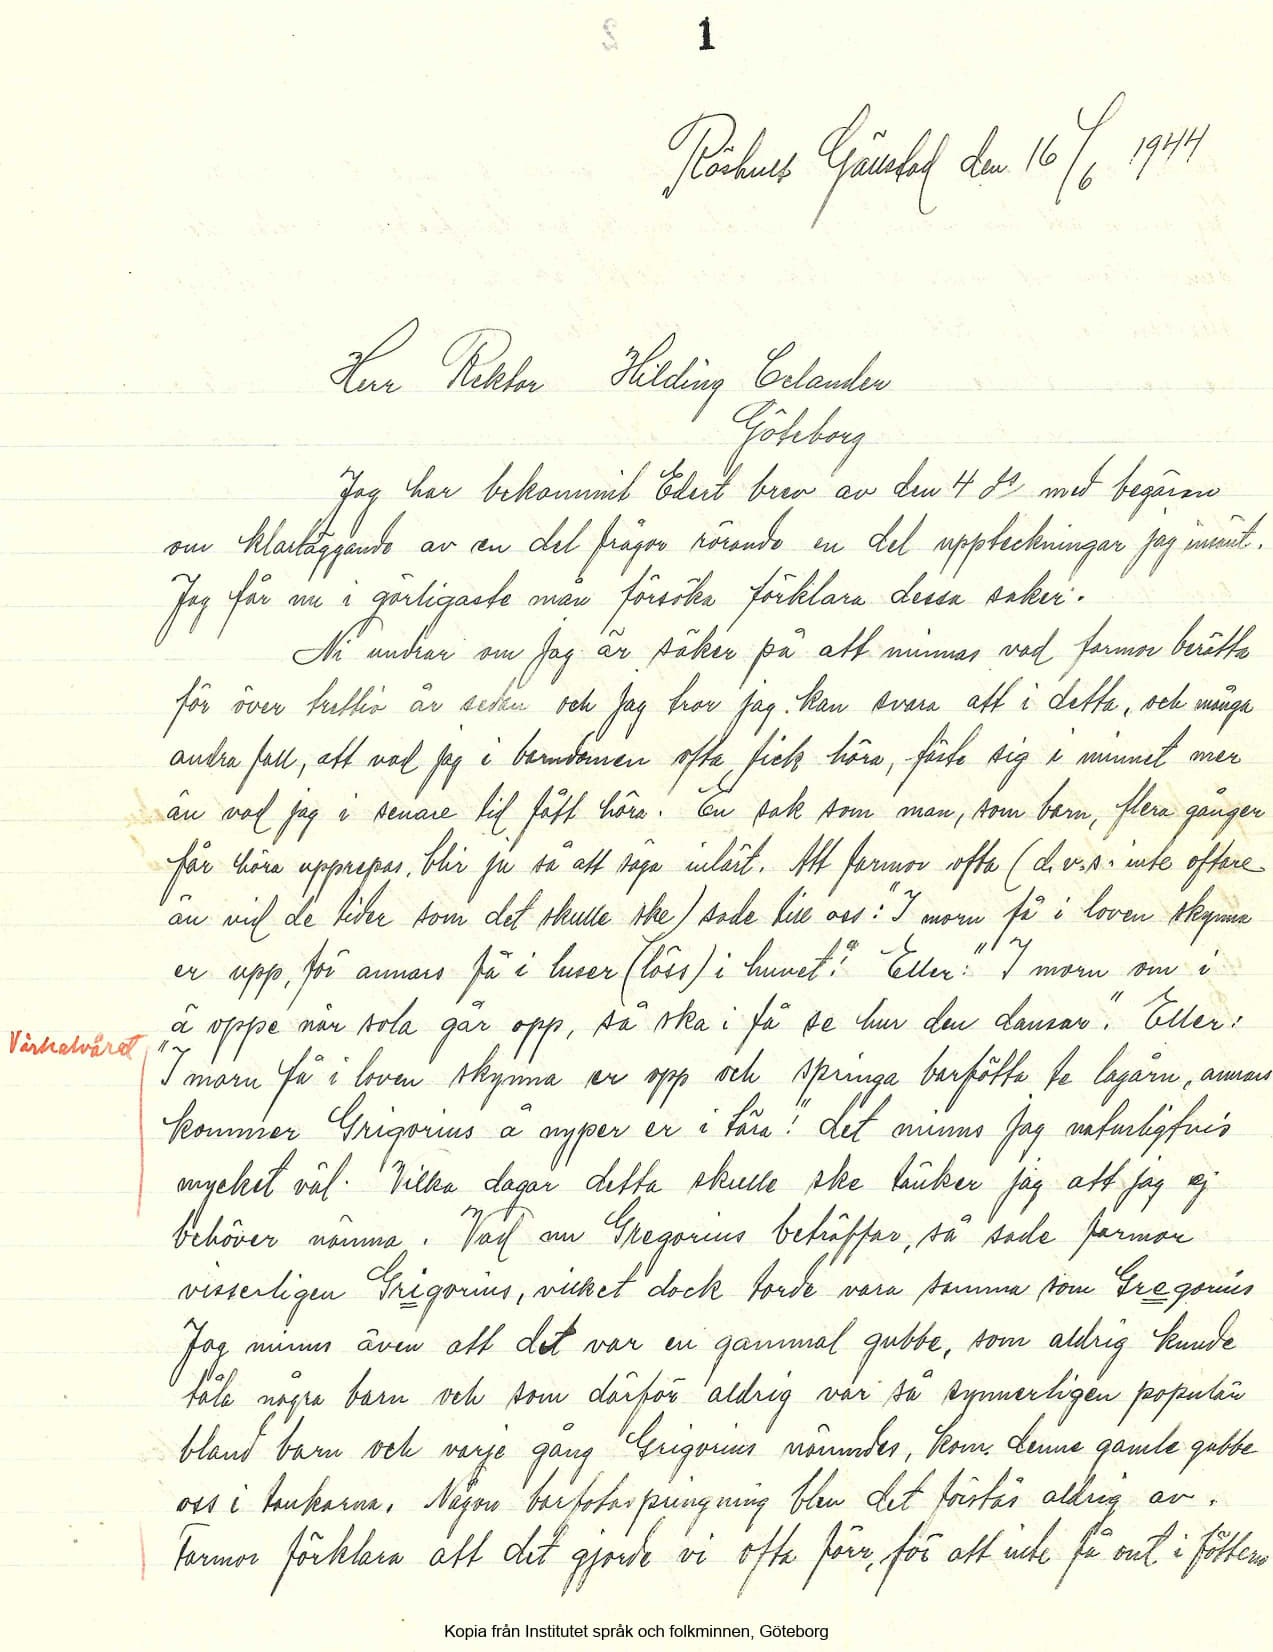 1
Röshult Gällstad den 16/6 1944
Herr Rektor Hilding Celander
Göteborg
Jag har bekommit Edert brev av den 4 ds med begäran
om klarläggande av en del frågor rörande en del uppteckningar jag insänt.
Jag får nu i görligaste mån försöka förklara dessa saker.
Ni undrar om Jag är säker på att minnas vad farmor berätta
för över trettio år sedan och Jag tror jag kan svara att i detta, och många
andra fall, att vad jag i barndomen ofta fick höra, fäste sig i minnet mer
än vad jag i senare tid fått höra. En sak som man, som barn, flera gånger
får höra upprepas, blir ju så att säga inlärt. Att farmor ofta (d.v.s. inte oftare
än vid de tider som det skulle ske) sade till oss: "I morn få i loven skynna
er upp, för annars få i luser (löss) i huvet!" Eller: "I morn om i
ä oppe när sola går opp, så ska i få se hur den dansar". Eller:
Vårkatvåret
"I morn få i loven skynna er opp och springa barfötta te lagårn, annars
kommer Grigorius å nyper er i tåra!" det minns Jag naturligtvis
mycket väl. Vilka dagar detta skulle ske tänker jag att jag ej
behöver nämna. Vad nu Gregorius beträffar, så sade farmor
visserligen Grigorius, vilket dock torde vara samma som Gregorius
Jag minns även att det var en gammal gubbe, som aldrig kunde
tåla några barn och som därför aldrig var så synnerligen populär
bland barn och varje gång Grigorius nämndes, kom denne gamle gubbe
oss i tankarna. Någon barfotaspringning blev det förstås aldrig av.
Farmor förklara att det gjorde vi ofta förr, för att inte få ont i fötterna
Kopia från Institutet språk och folkminnen, Göteborg